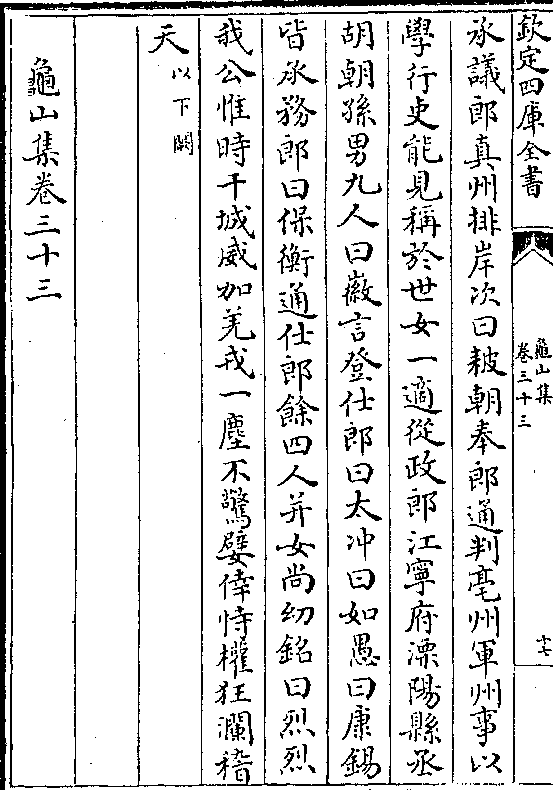 欽定四庫全書
龜山集
卷三十三
十七
承議郎真州排岸次曰𢻹朝奉郎通判亳州軍州事以
學行吏能見稱於世女一適從政郎江寧府溧陽縣丞
胡朝孫男九人曰徽言登仕郎曰太冲曰如愚曰康錫
皆承務郎曰保衡通仕郎餘四人并女尚幼銘曰烈烈
我公惟時干城威加羌戎一塵不驚嬖倖恃權狂瀾稽
天以下闕
龜山集卷三十三